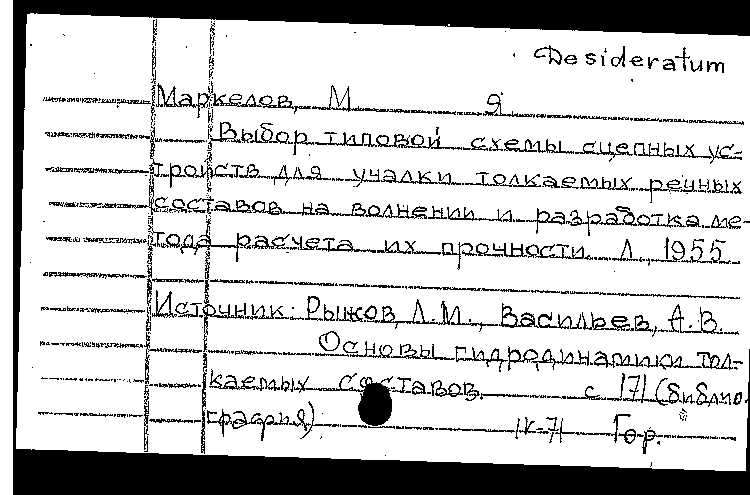 Desideratum
Маркелов, М. Я.
Выбор типовой схемы сцепных ус-
тройств для учалки толкаемых речных
составов на волнении и разработка ме-
тода расчета их прочности. Л., 1955
Источник: Рыжов, Л.М., Васильев, А.В.
Основы гидродинамики тол-
каемых составов. с 171 (библио-
графия)
1К-71 Гор.